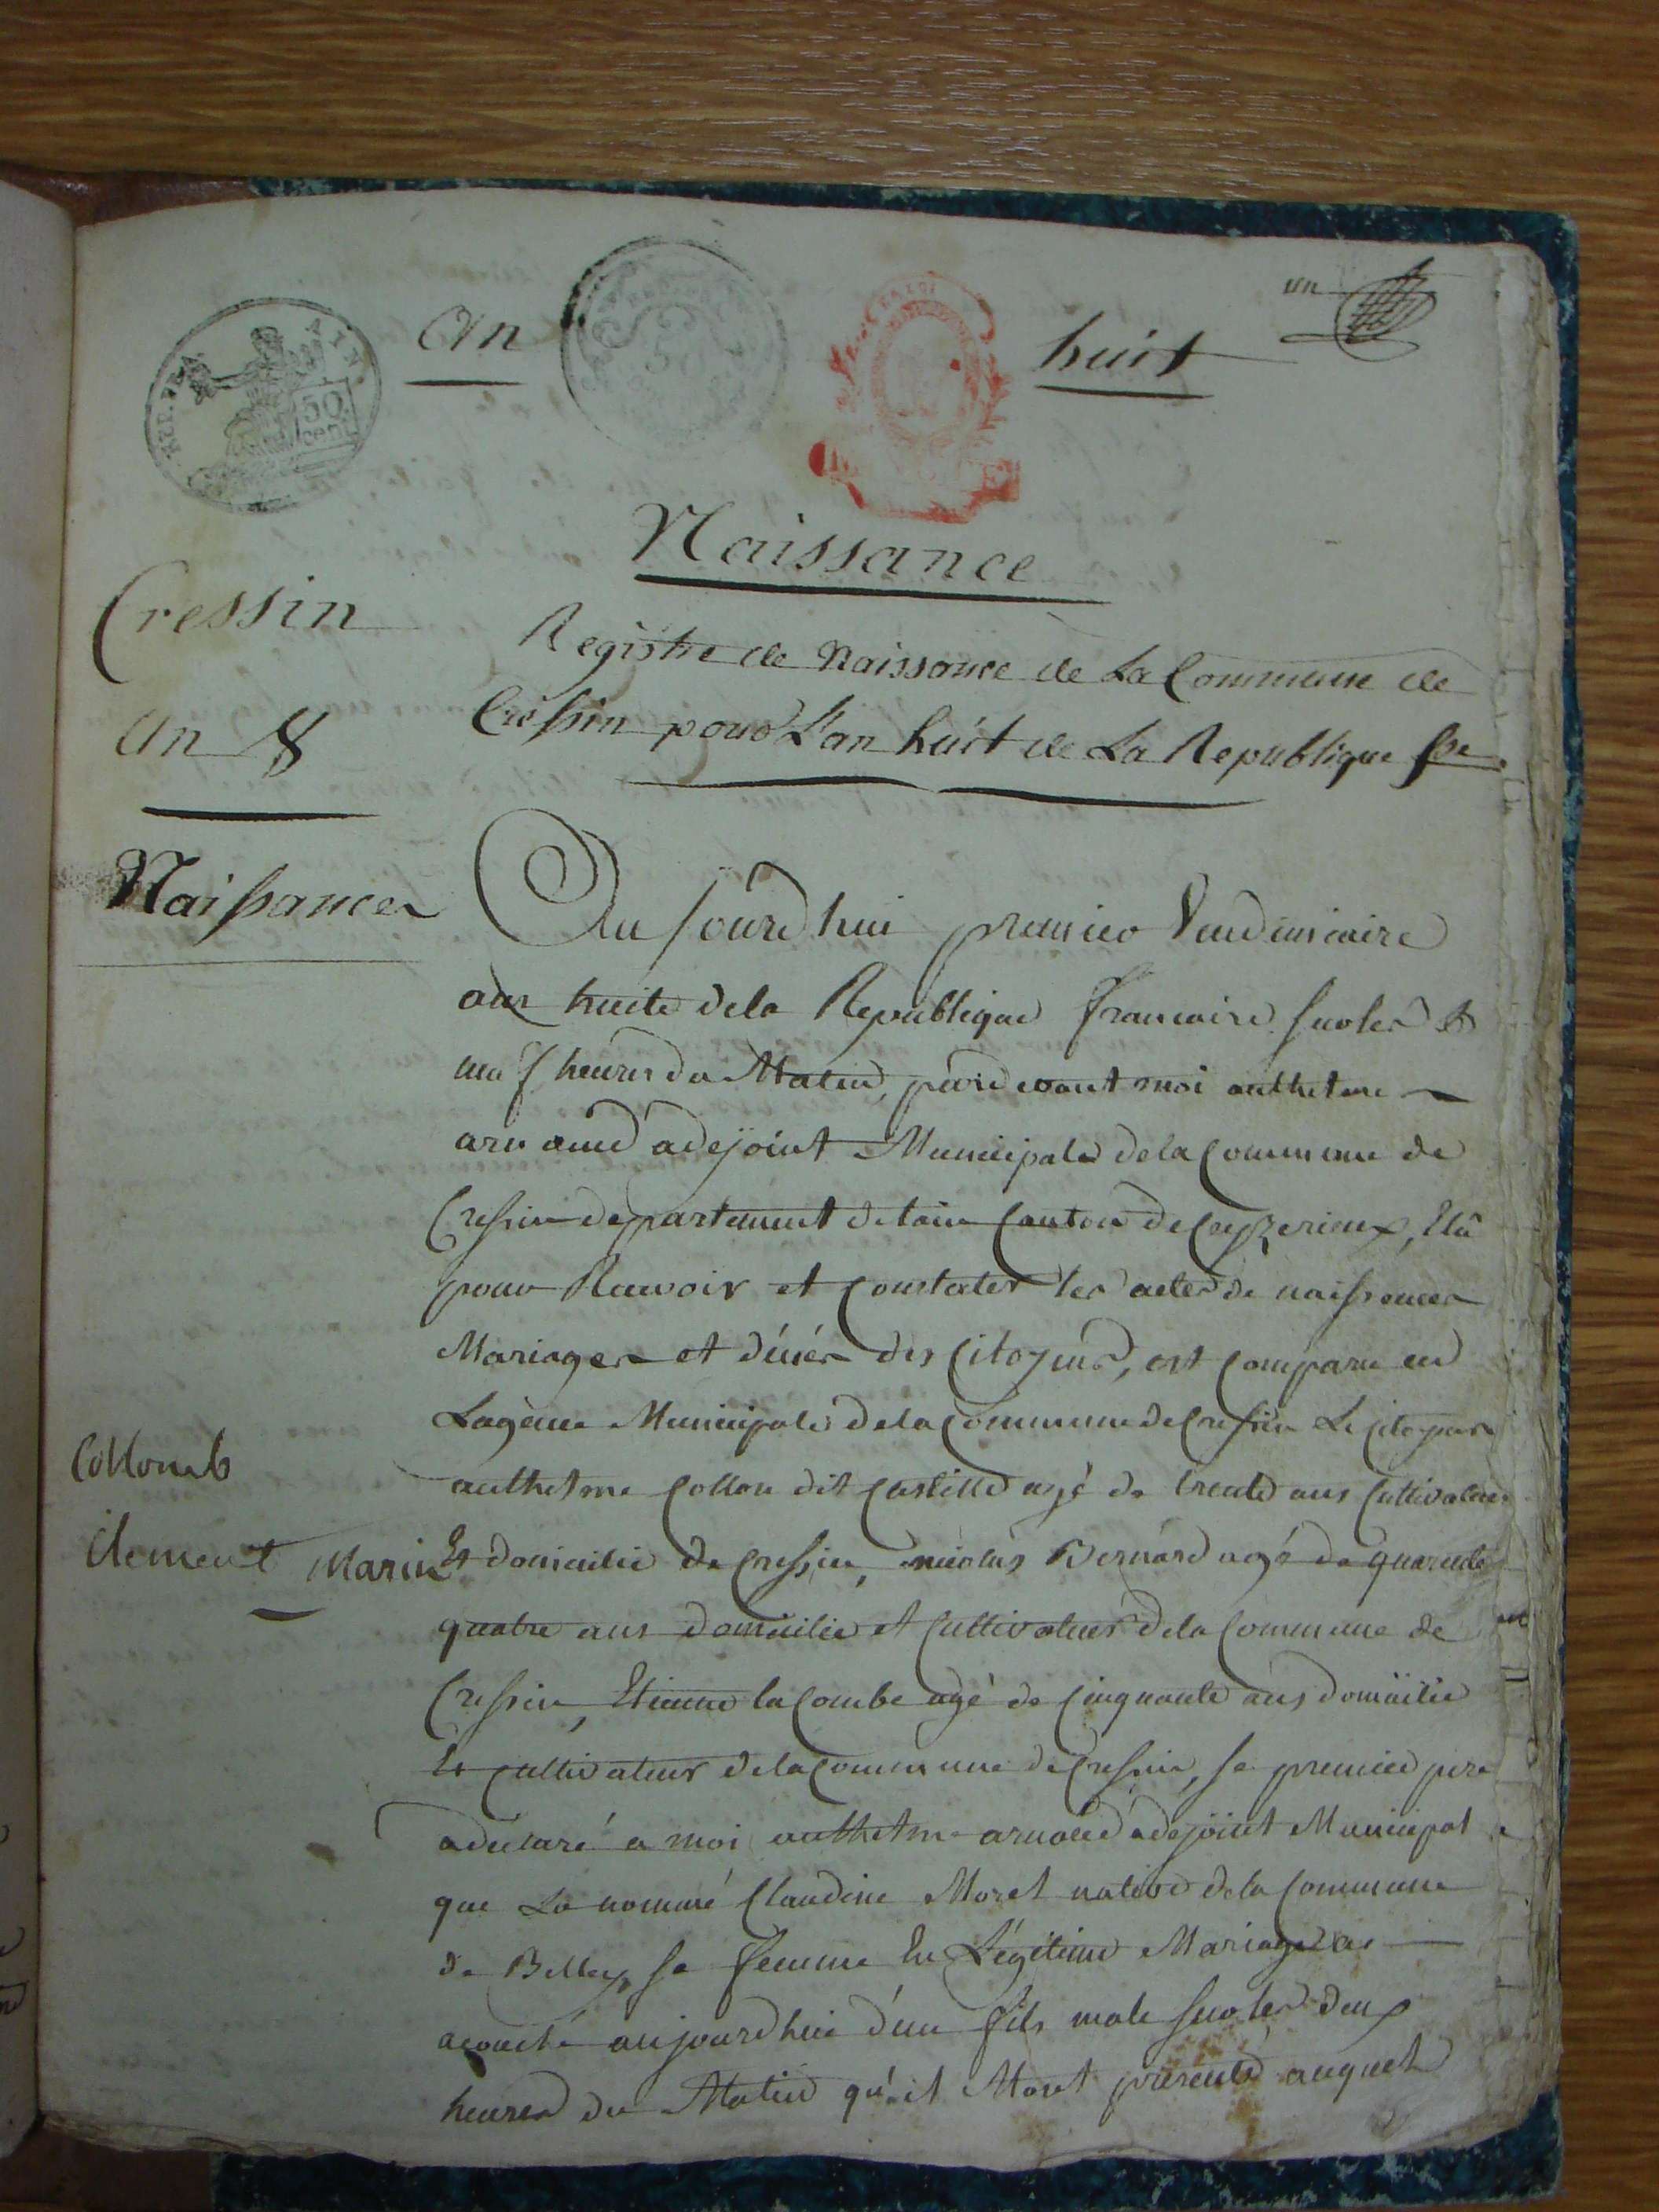 un
An huit
REP. FRA. AIN.
50 cent
Naissance
Cressin
An 8
Naissances
Registre de Naissance de La Commune de
Cressin pour L'an huit de La Republique fse
Aujourd'hui premier Vendemiaire
an huite de la Republique francaire sur les
neuf heures du Matin, pardevant moi anthelme
arnaud adejoint Municipale de la Commune de
Cressin departement de lain Canton de Ceyzerieux, Elû
pour Recevoir et Constater les actes de naissances
Mariages et décés des Citoyens, est Comparu en
Municipale de la Commune de Cressin Le Citoyen
Collomb
anthelme Collon dit Castille agé de trente ans Cultivateur
Clement Marin
Et domicilié de Cressin, nicolas Bernard agé de quarente
quatre ans domicilié et Cultivateur de la Commune de
Cressin, Etienne la Combe agé de Cinquante ans domicilié
Et Cultivateur de la Commune de Cressin, le premier pere
a declaré a moi anthelme arnaud adejoint Municipal
que La nommé Claudine Moret native de la Commune
de Belley sa femme En Légitime Mariage as
acouché aujourdhui d'un fils male sur les deux
heures du Matin qu'il Mont présenté auquel